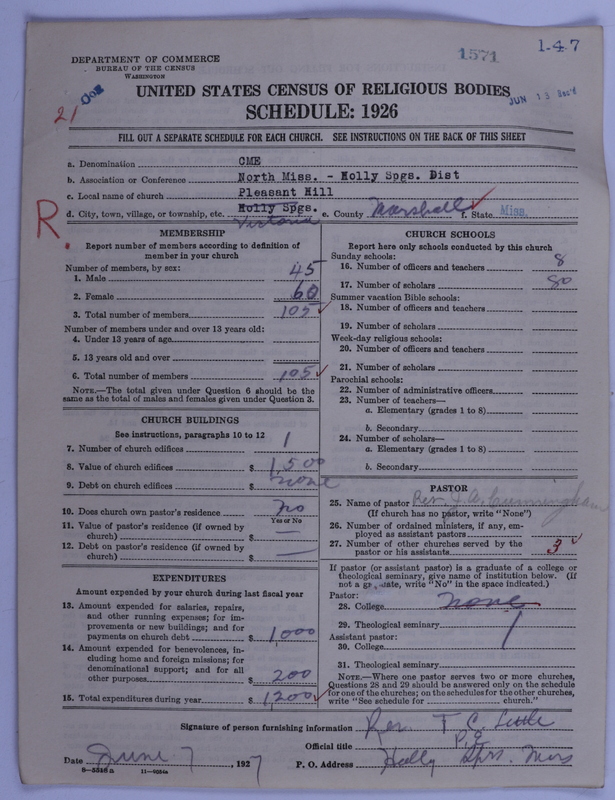 DEPARTMENT OF COMMERCE
BUREAU OF THE CENSUS
WASHINGTON
1571
1-4-7
21
UNITED STATES CENSUS OF RELIGIOUS BODIES
JUN 13
SCHEDULE: 1926
FILL OUT A SEPARATE SCHEDULE FOR EACH CHURCH. SEE INSTRUCTIONS ON THE BACK OF THIS SHEET
a. Denomination CME
b. Association or Conference North Miss. - Holly Spgs. Dist
c. Local name of church Pleasant Hill
d. City, town, village, or township, etc. Holly Spgs. e. County Marshall f. State Miss.
Victoria
R
MEMBERSHIP
Report number of members according to definition of
member in your church
Number of members, by sex:
1. Male 45
2. Female 60
3. Total number of members 105
Number of members under and over 13 years old:
4. Under 13 years of age
5. 13 years old and over
6. Total number of members 105
NOTE.—The total given under Question 6 should be
same as the total of males and females given under Question 3.
CHURCH BUILDINGS
See instructions, paragraphs 10 to 12
7. Number of church edifices 1
8. Value of church edifices $ 1,500
9. Debt on church edifices $ none
10. Does church own pastor's residence? no
Yes or No
11. Value of pastor's residence (if owned by
church) $ —
12. Debt on pastor's residence (if owned by
church) $ —
EXPENDITURES
Amount expended by your church during last fiscal year
13. Amount expended for salaries, repairs,
and other running expenses; for im-
provements or new buildings; and for
payments on church debt $ 1,000
14. Amount expended for benevolences, in-
cluding home and foreign missions; for
denominational support; and for all
other purposes $ 200
15. Total expenditures during year $ 1,200
CHURCH SCHOOLS
Report here only schools conducted by this church
Sunday schools:
16. Number of officers and teachers 8
17. Number of scholars 80
Summer vacation Bible schools:
18. Number of officers and teachers
19. Number of scholars
Week-day religious schools:
20. Number of officers and teachers
21. Number of scholars
Parochial schools:
22. Number of administrative officers
23. Number of teachers—
a. Elementary (grades 1 to 8)
b. Secondary
24. Number of scholars—
a. Elementary (grades 1 to 8)
b. Secondary
PASTOR
25. Name of pastor Rev. J. A. Cunningham
(If church has no pastor, write "None")
26. Number of ordained ministers, if any, em-
ployed as assistant pastors
27. Number of other churches served by the
pastor or his assistants 3
If pastor (or assistant pastor) is a graduate of a college or
theological seminary, give name of institution below. (If
not a graduate, write "No" in the space indicated.)
Pastor:
28. College none
29. Theological seminary
Assistant pastor:
30. College
31. Theological seminary
NOTE.—Where one pastor serves two or more churches,
Questions 28 and 29 should be answered only on the schedule
for one of the churches; on the schedules for the other churches,
write "See schedule for church."
Signature of person furnishing information Rev. T. C. Little
Official title P.E.
Date June 7, 1927 P. O. Address Holly Spgs. Miss
8-5518a 11-9054a